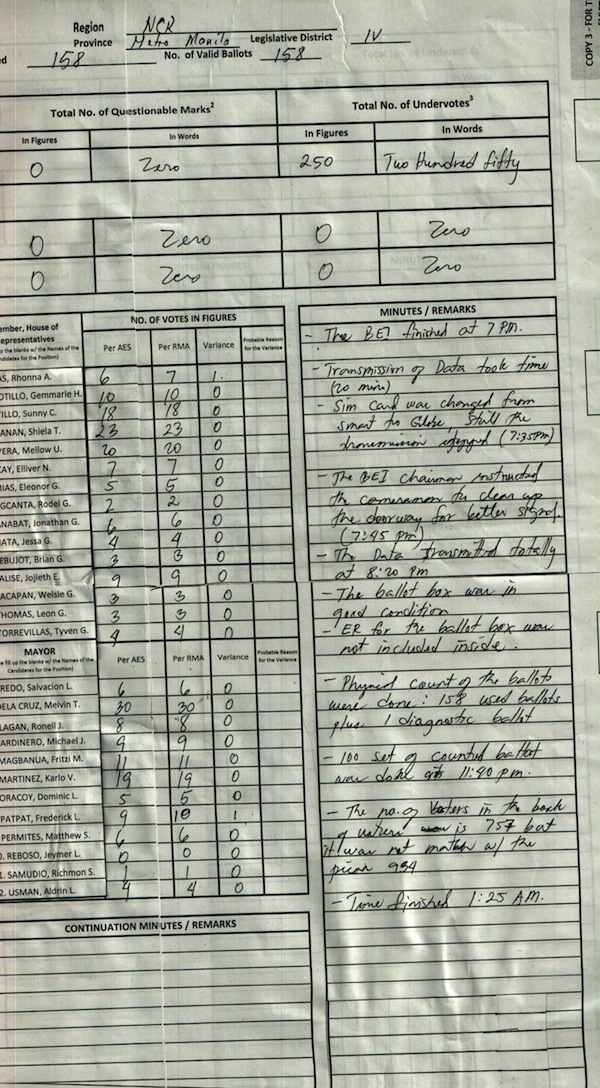 COPY 3 - FOR T
Region NCR
Province Metro Manila Legislative District IV
158 No. of Valid Ballots 158
Total No. of Questionable Marks2 Total No. of Undervotes3
In Figures In Words In Figures In Words
0 Zero 250 Two Hundred fifty
0 Zero 0 Zero
0 Zero 0 Zero
ember, House of
epresentatives
NO. OF VOTES IN FIGURES
Per AES Per RMA Variance Probable Reason for the Variance
AS, Rhonna A. 6 7 1
OTILLO, Gemmarie H. 10 10 0
TILLO, Sunny C. 18 18 0
ANAN, Shiela T. 23 23 0
VERA, Mellow U. 20 20 0
CAY, Elliver N. 7 7 0
MIAS, Eleonor G. 5 5 0
GCANTA, Rodel G. 2 2 0
NABAT, Jonathan G. 6 6 0
ATA, Jessa G. 4 4 0
EBUJOT, Brian G. 3 3 0
ALISE, Jojieth E. 9 9 0
ACAPAN, Welsie G. 3 3 0
THOMAS, Leon G. 3 3 0
TORREVILLAS, Tyven G. 4 4 0
MAYOR
e fill up the blanks w/ the Names of the
Candidates for the Position)
Per AES Per RMA Variance Probable Reason for the Variance
REDO, Salvacion L. 6 6 0
DELA CRUZ, Melvin T. 30 30 0
LAGAN, Ronell J. 8 8 0
ARDINERO, Michael J. 9 9 0
MAGBANUA, Fritzi M. 11 11 0
MARTINEZ, Karlo V. 19 19 0
ORACOY, Dominic L. 5 5 0
PATPAT, Frederick L. 9 10 1
PERMITES, Matthew S. 6 6 0
0. REBOSO, Jeymer L. 0 0 0
1. SAMUDIO, Richmon S. 1 1 0
2. USMAN, Aldrin L. 4 4 0
CONTINUATION MINUTES / REMARKS
MINUTES / REMARKS
- The BEI finished at 7 PM.
- Transmission of Data took time
(20 min)
- Sim Card was changed from
smart to Globe, Still the
transmission (7:35pm)
- The BEI chairman instructed
the cameraman to clear up
the doorway for better signal.
(7:45 pm)
- The Data transmitted totally
at 8:20 pm
- The ballot box was in
good condition
- ER for the ballot box was
not included inside.
- Physical count of the ballots
were done : 158 used ballots
plus 1 diagnostic ballot
- 100 set of counted ballot
was done 11:40 pm.
- The no. of voters in the book
of voters is 757 but
it was not match w/ the
994
- Time finished 1:25 AM.